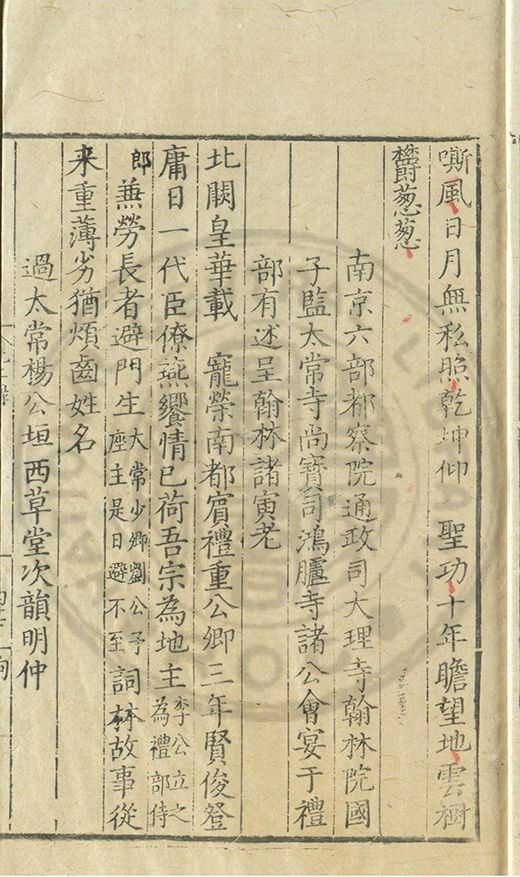 嘶風日月無私照乾坤仰　聖功十年瞻望地雲樹
欝葱葱
南京六部都察院通政司大理寺翰林院國
子監太常寺尚寶司鴻臚寺諸公會宴于禮
部有述呈翰林諸寅老
北闕皇華載　寵榮南都賓禮重公卿三年賢俊登
庸日一代臣僚燕饗情已荷吾宗為地主李公立之為禮部侍
郎兼勞長者避門生大常少卿劉公予座主是日避不至詞林故事從
来重薄劣猶煩齒姓名
過太常楊公垣西草堂次韻明仲